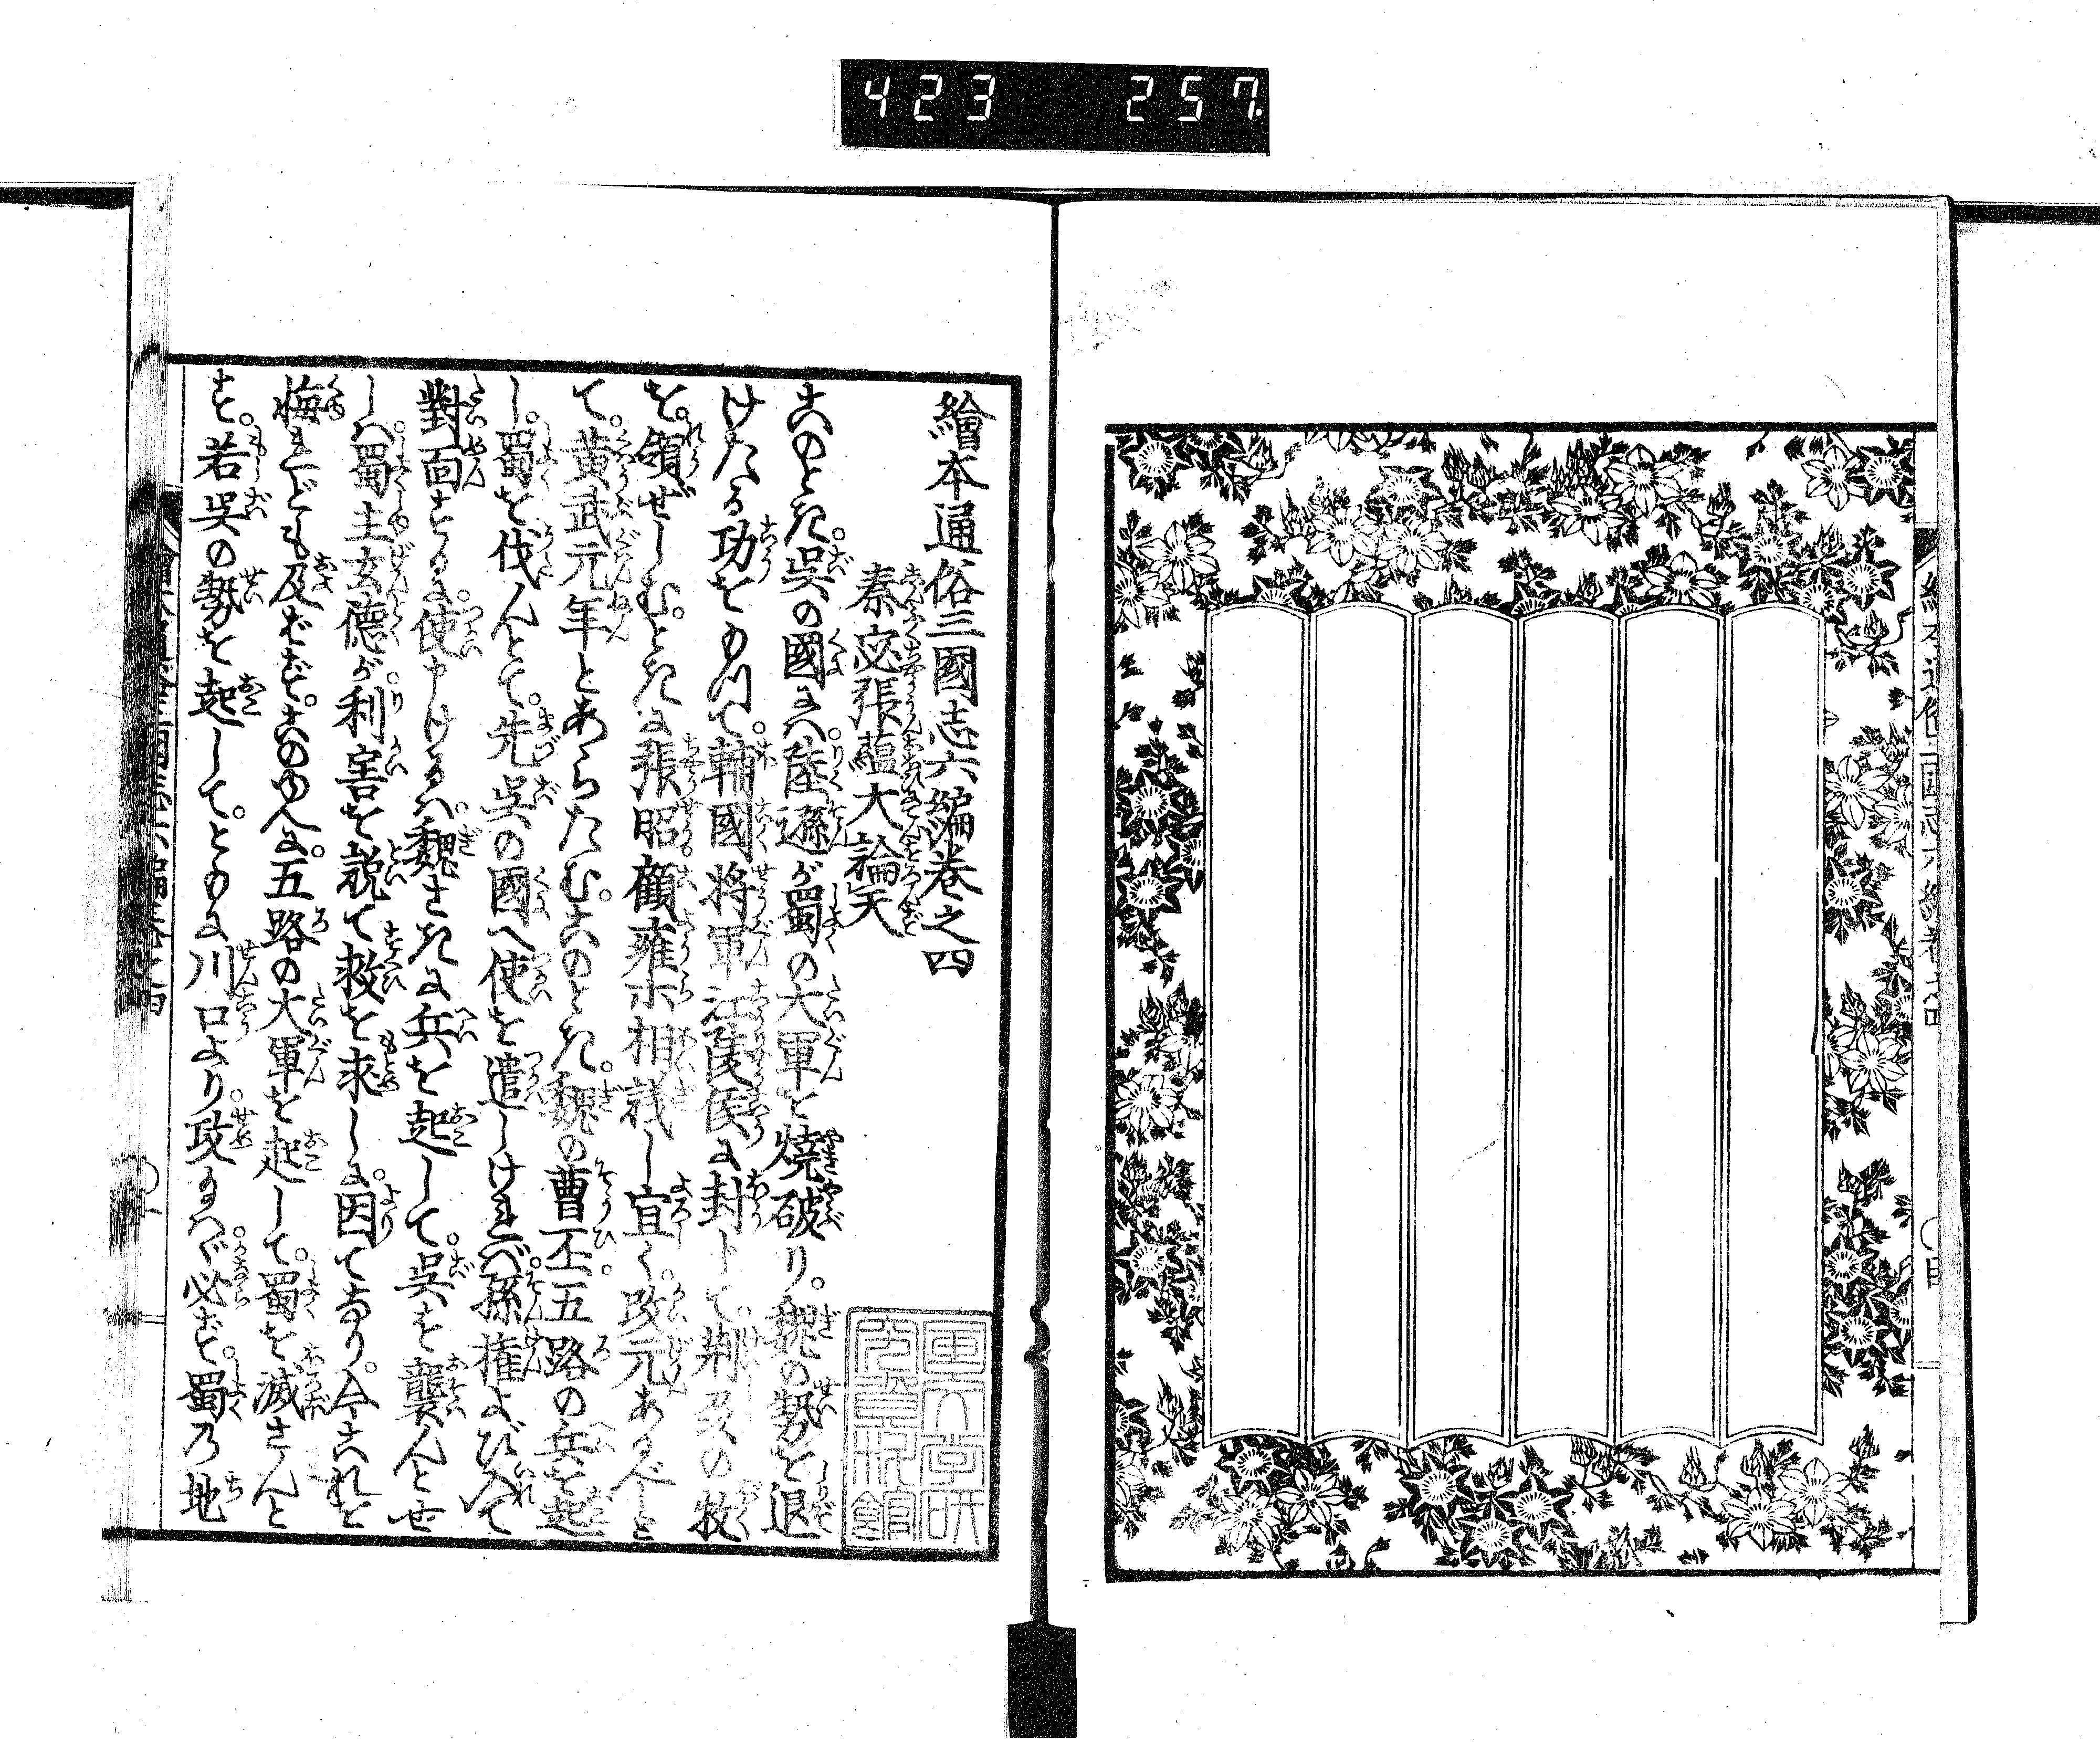 423 257
繪本通俗三國志六編卷之四
秦宓張蘊大論天
このとき。呉の國には。陸遜が蜀の大軍を燒破り。魏の勢を退
けたる功をもつて。輔國將軍江陵侯に封じて。荊州の牧
を。領ぜしむ。ときに張昭顧雍相議し宜く。改元あるべしと
て。黄武元年とあらたむ。このとき。魏の曹丕。五路の兵を起
し。蜀を伐んとて。先呉の國へ使を遣しければ。孫権よび入て
對面するに。使申けるは。魏さきに兵を起して。呉を襲んとせ
しは。蜀主玄德が。利害を説て救を求しに。因てなり。今これを
悔れども及ばず。このゆへに。五路の大軍を起して。蜀を滅さんと
す。若呉の勢を起して。ともに川口より。攻るへば。必ず。蜀乃地